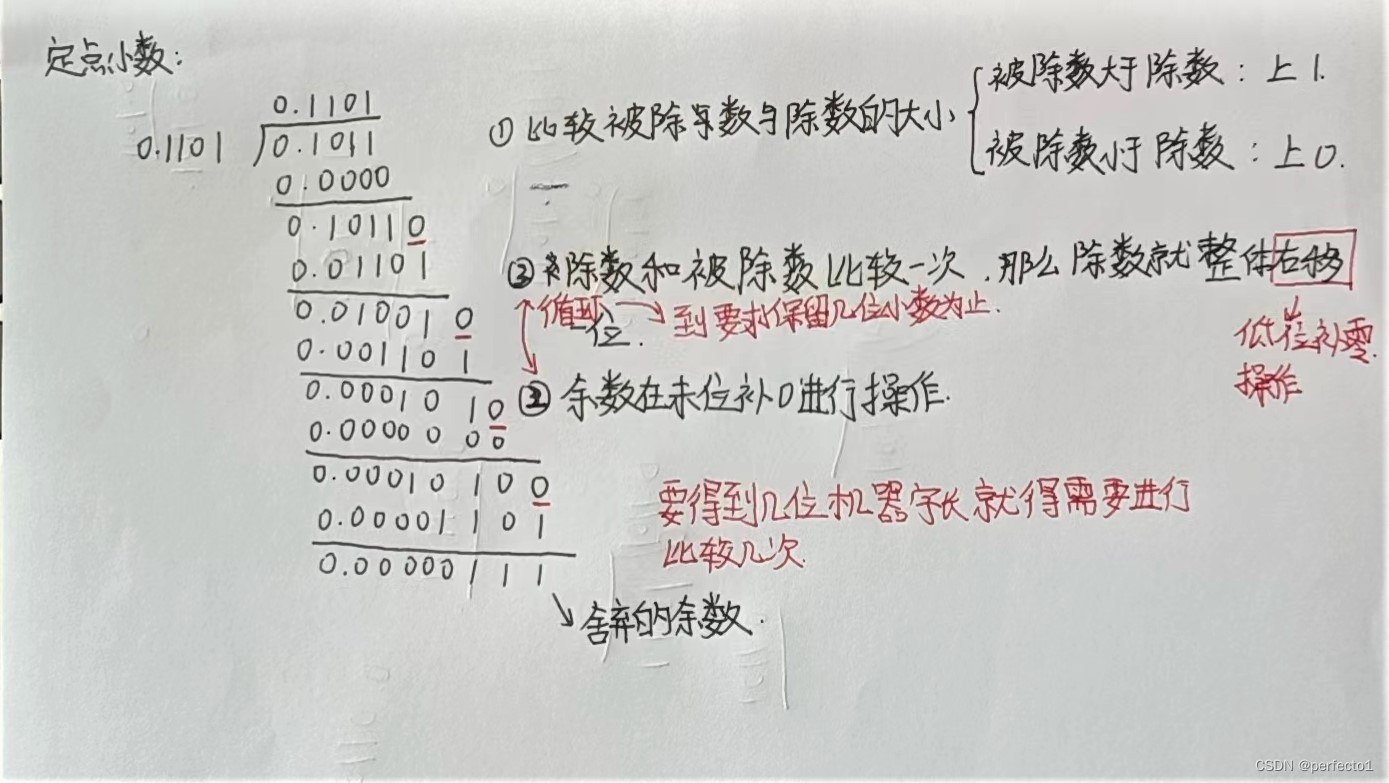 定点小数:
0.1101
0.1101 0.1011
0.0000
0.10110
0.01101
0.010010
0.001101
0.0001010
0.0000000
0.00010100
0.00001101
0.00000111
舍弃的余数.
① 比较被除数与除数的大小
被除数大于除数: 上1.
被除数小于除数: 上0.
② 除数和被除数比较一次,那么除数就整体右移
一位.
循环 到要求保留几位小数为止.
低位补零.
操作
② 余数在末位补0进行操作.
要得到几位机器字长就得需要进行
比较几次.
CSDN @perfecto1